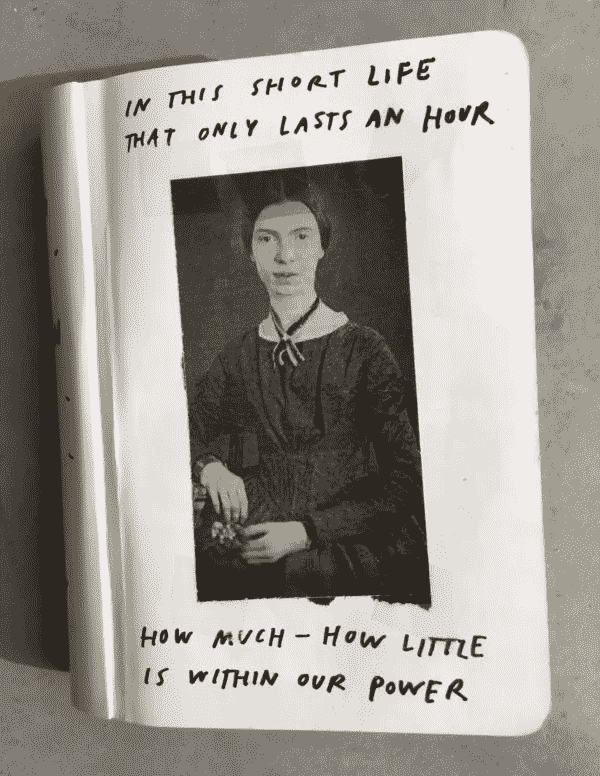 IN THIS SHORT LIFE
THAT ONLY LASTS AN HOUR
HOW MUCH – HOW LITTLE
IS WITHIN OUR POWER